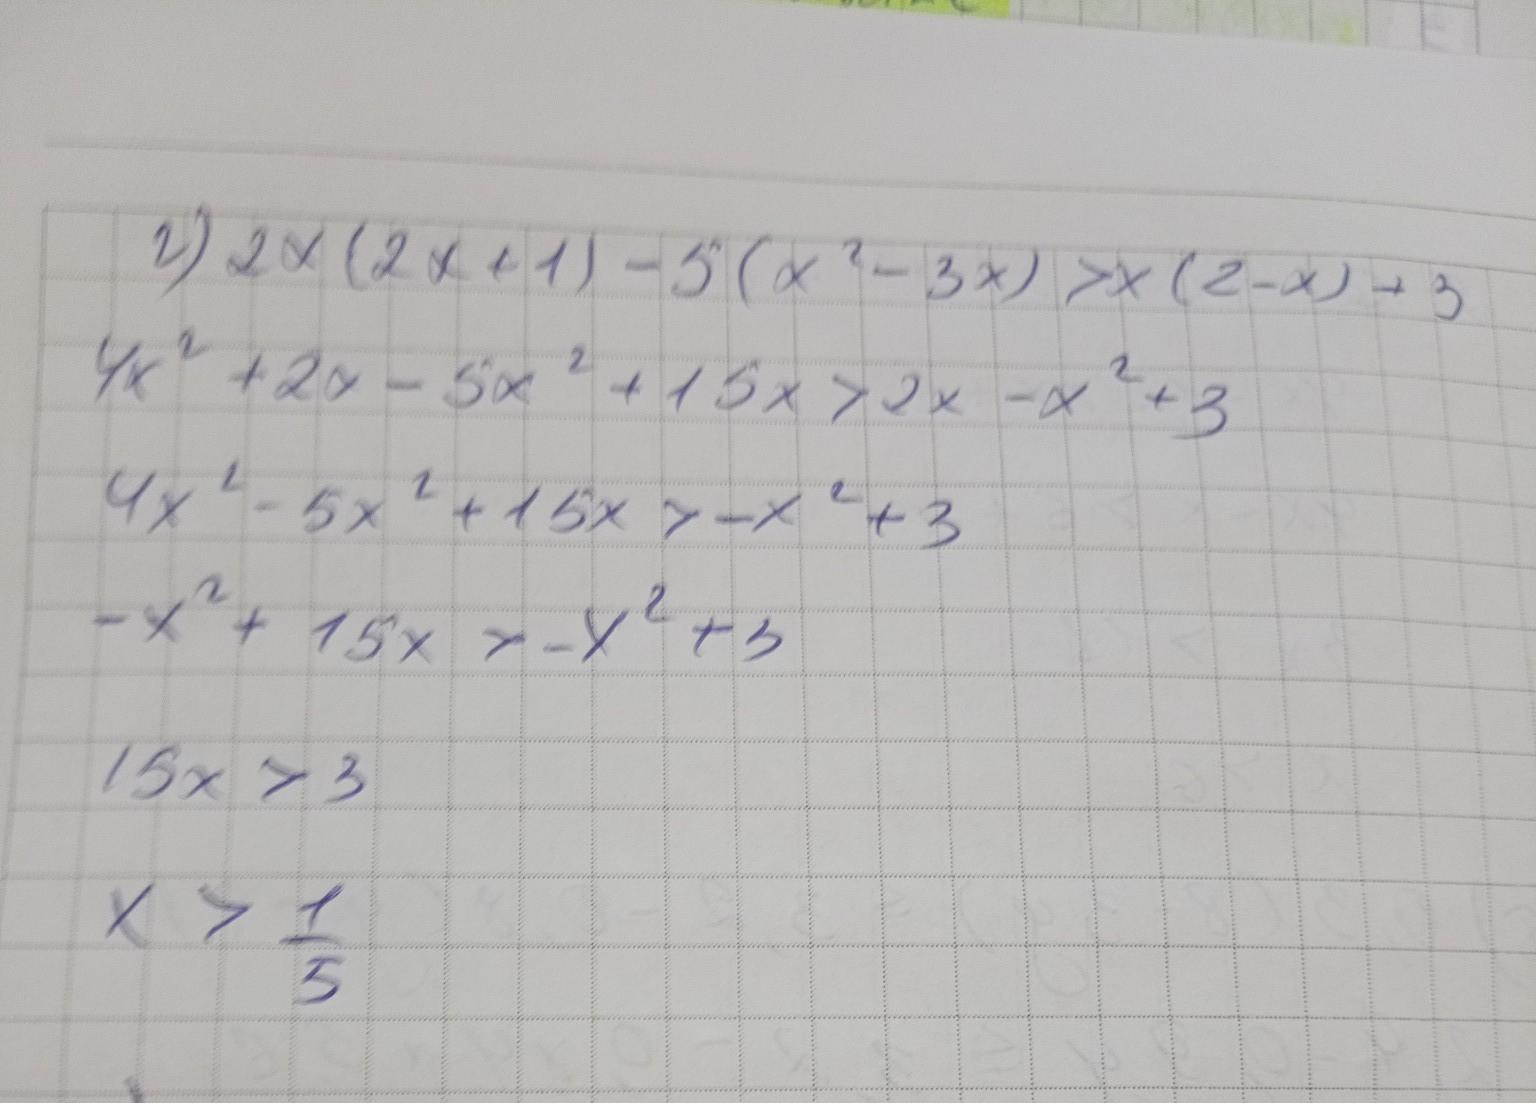 г) 2x(2x+1)-5(x²-3x)>x(2-x)+3
4x²+2x-5x²+15x>2x-x²+3
4x²-5x²+15x>-x²+3
-x²+15x>-x²+3
15x>3
x>1/5